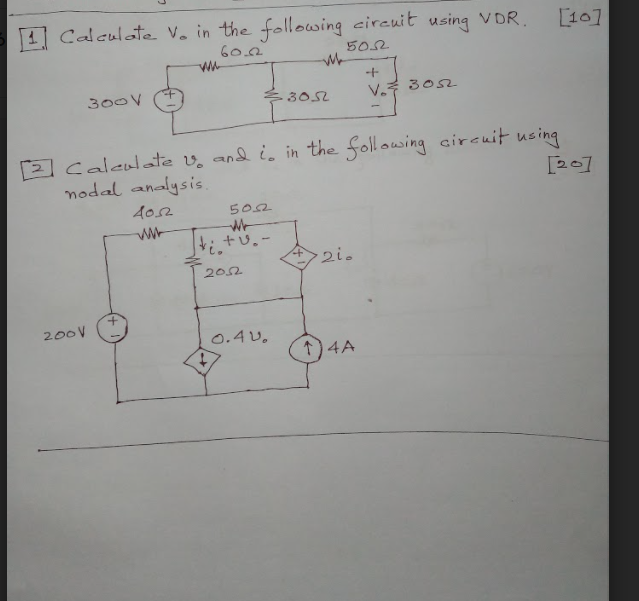 1 Calculate Vo in the following circuit using VDR. [10]
60Ω 50Ω
300V + - 30Ω + Vo - 30Ω
2 Calculate vo and io in the following circuit using
nodal analysis. [20]
40Ω 50Ω
io + vo -
20Ω + - 2io
200V + - 0.4vo 4A